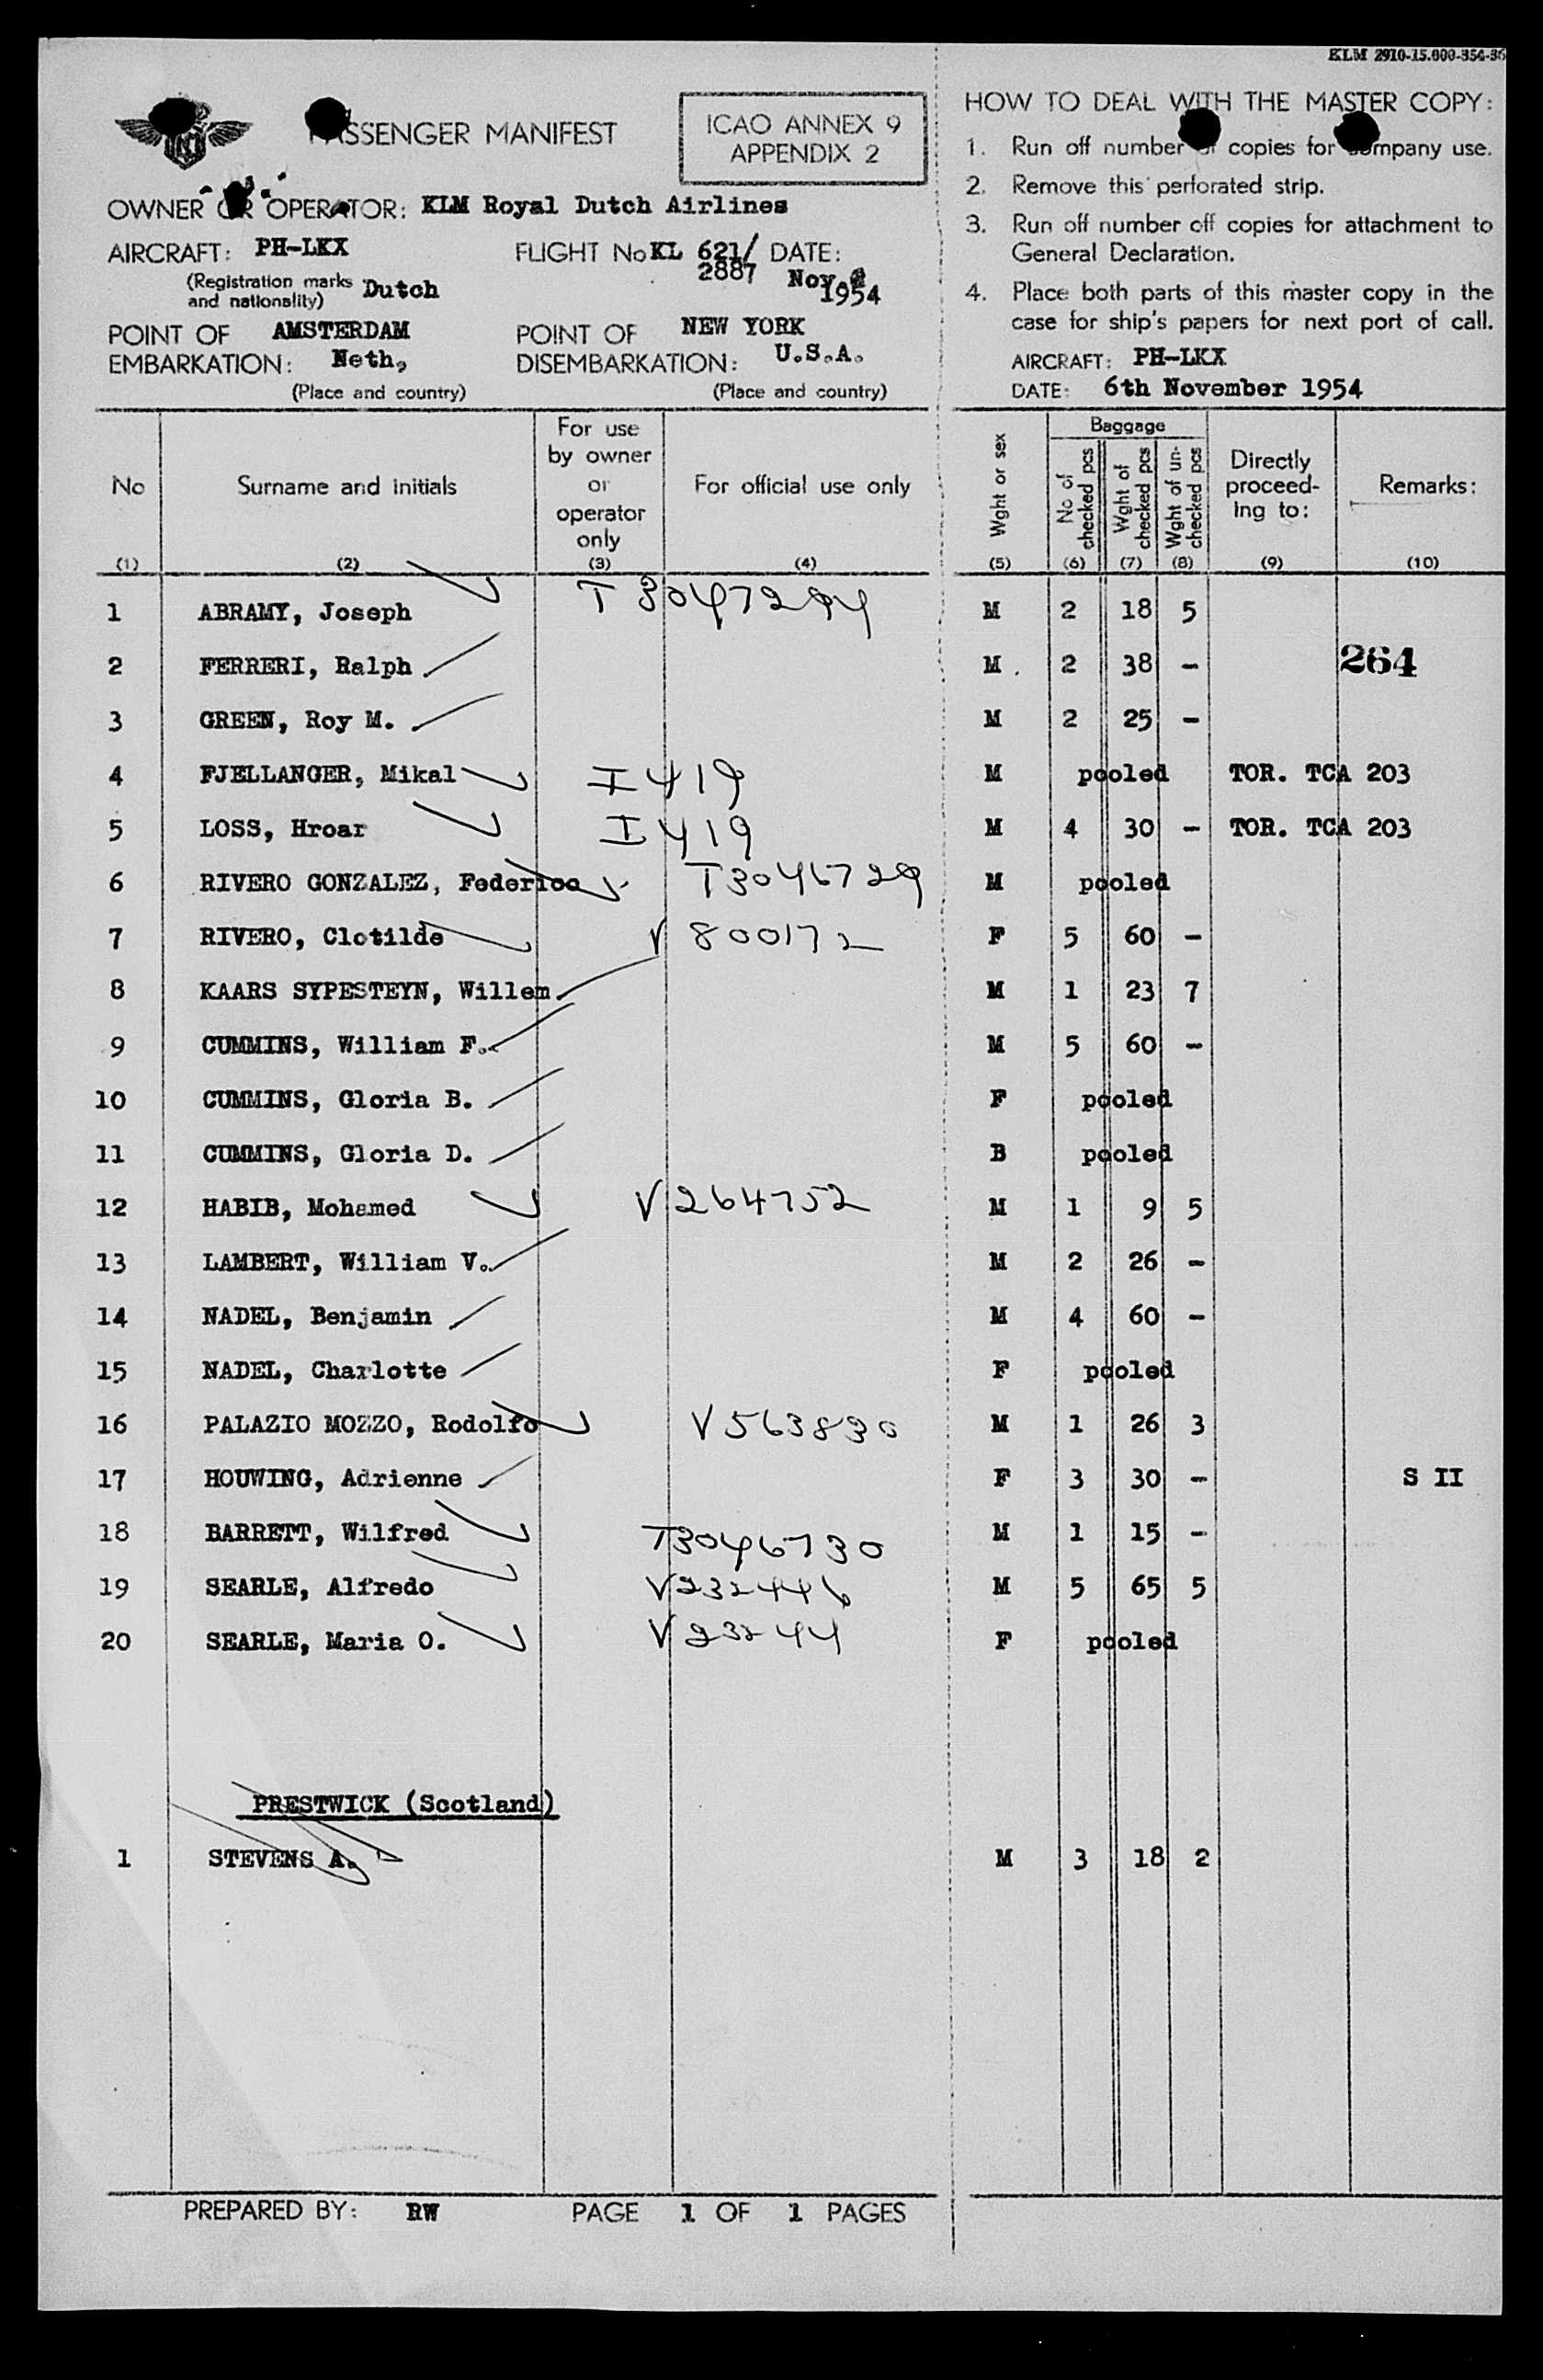 KLM 2910-15.000-354-36
PASSENGER MANIFEST
ICAO ANNEX 9
APPENDIX 2
OWNER OR OPERATOR: KLM Royal Dutch Airlines
AIRCRAFT: PH-LKX
FLIGHT No KL 621/ DATE:
2887 Nov.
1954
(Registration marks
and nationality) Dutch
POINT OF AMSTERDAM
EMBARKATION: Neth,
(Place and country)
POINT OF NEW YORK
DISEMBARKATION: U.S.A.
(Place and country)
HOW TO DEAL WITH THE MASTER COPY:
1. Run off number of copies for company use.
2. Remove this perforated strip.
3. Run off number off copies for attachment to
General Declaration.
4. Place both parts of this master copy in the
case for ship's papers for next port of call.
AIRCRAFT: PH-LKX
DATE: 6th November 1954
No (1)
Surname and initials (2)
For use by owner or operator only (3)
For official use only (4)
Wght or sex (5)
Baggage
No of checked pcs (6)
Wght of checked pcs (7)
Wght of un-checked pcs (8)
Directly proceed-ing to: (9)
Remarks: (10)
1 ABRAMY, Joseph T 3047294 M 2 18 5
2 FERRERI, Ralph M . 2 38 - 264
3 GREEN, Roy M. M 2 25 -
4 FJELLANGER, Mikal I 419 M pooled TOR. TCA 203
5 LOSS, Hroar I 419 M 4 30 - TOR. TCA 203
6 RIVERO GONZALEZ, Federico T3046729 M pooled
7 RIVERO, Clotilde V 800172 F 5 60 -
8 KAARS SYPESTEYN, Willem M 1 23 7
9 CUMMINS, William F. M 5 60 -
10 CUMMINS, Gloria B. F pooled
11 CUMMINS, Gloria D. B pooled
12 HABIB, Mohamed V264752 M 1 9 5
13 LAMBERT, William V. M 2 26 -
14 NADEL, Benjamin M 4 60 -
15 NADEL, Charlotte F pooled
16 PALAZIO MOZZO, Rodolfo V563830 M 1 26 3
17 HOUWING, Adrienne F 3 30 - S II
18 BARRETT, Wilfred T3046730 M 1 15 -
19 SEARLE, Alfredo V232446 M 5 65 5
20 SEARLE, Maria O. V23244 F pooled
PRESTWICK (Scotland)
1 STEVENS A. M 3 18 2
PREPARED BY: RW PAGE 1 OF 1 PAGES